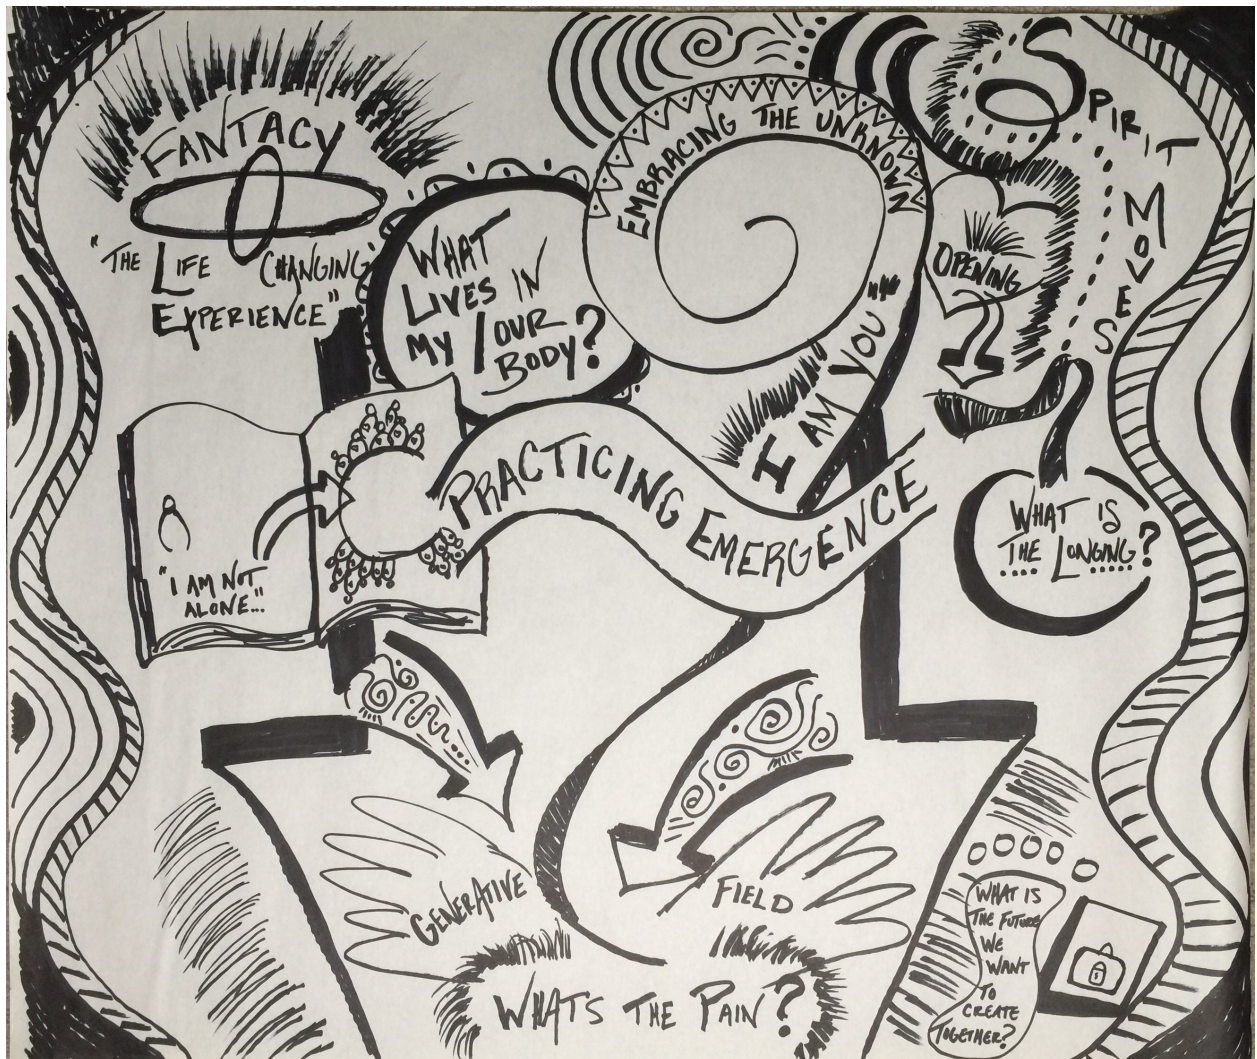 FANTACY
"THE LIFE CHANGING
EXPERIENCE"
WHAT
LIVES IN
MY / OUR
BODY?
EMBRACING THE UNKNOWN
"I AM YOU"
SPIRIT
MOVES
OPENING
"I AM NOT
ALONE..."
PRACTICING EMERGENCE
WHAT IS
THE LONGING?
GENERATIVE
FIELD
WHATS THE PAIN?
WHAT IS
THE FUTURE
WE
WANT
TO
CREATE
TOGETHER?